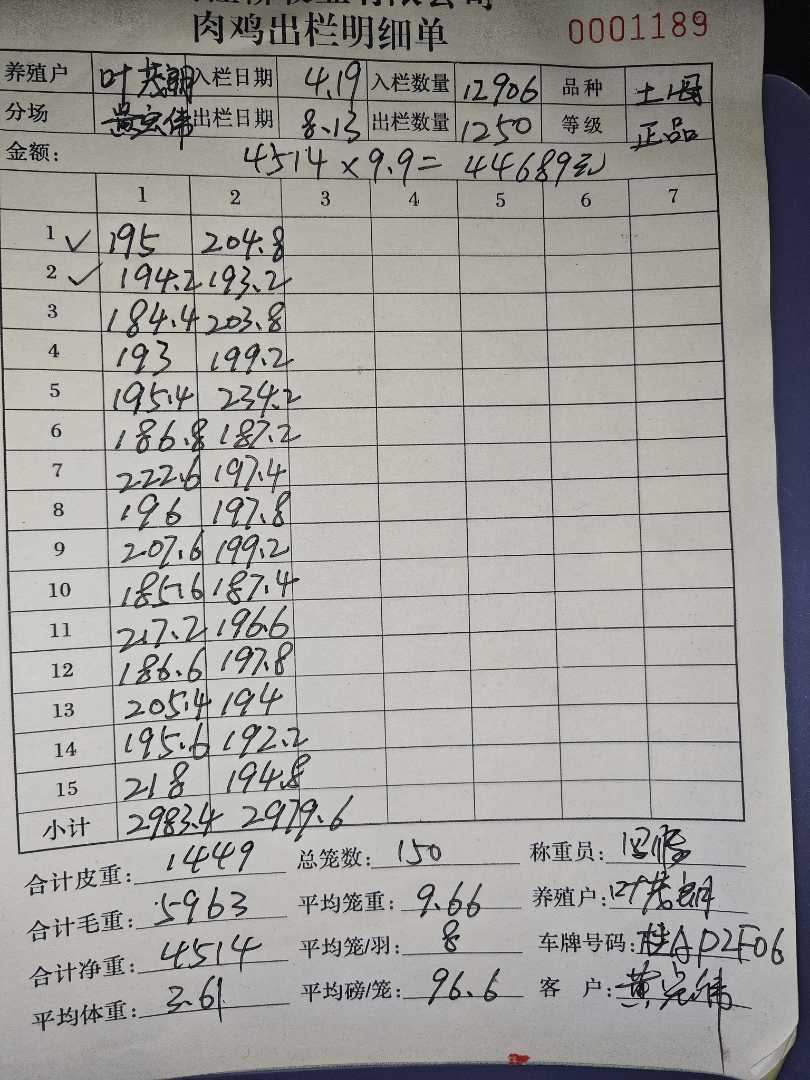 肉鸡出栏明细单 0001189
养殖户 叶 朝 入栏日期 4.19 入栏数量 12906 品种 土
分场 黄 伟 出栏日期 8.13 出栏数量 1250 等级 正品
金额: 4514×9.9=44689元
1 2 3 4 5 6 7
1 ✓ 195 204.8
2 ✓ 194.2 193.2
3 184.4 203.8
4 193 199.2
5 195.4 234.2
6 186.8 187.2
7 222.6 197.4
8 196 197.8
9 207.6 199.2
10 185.6 187.4
11 217.2 196.6
12 186.6 197.8
13 205.4 194
14 195.6 192.2
15 218 194.8
小计 2983.4 2979.6
合计皮重: 1449 总笼数: 150 称重员:
合计毛重: 5963 平均笼重: 9.66 养殖户: 叶
合计净重: 4514 平均笼/羽: 8 车牌号码: 桂AD2F06
平均体重: 3.61 平均磅/笼: 96.6 客 户: 黄 伟